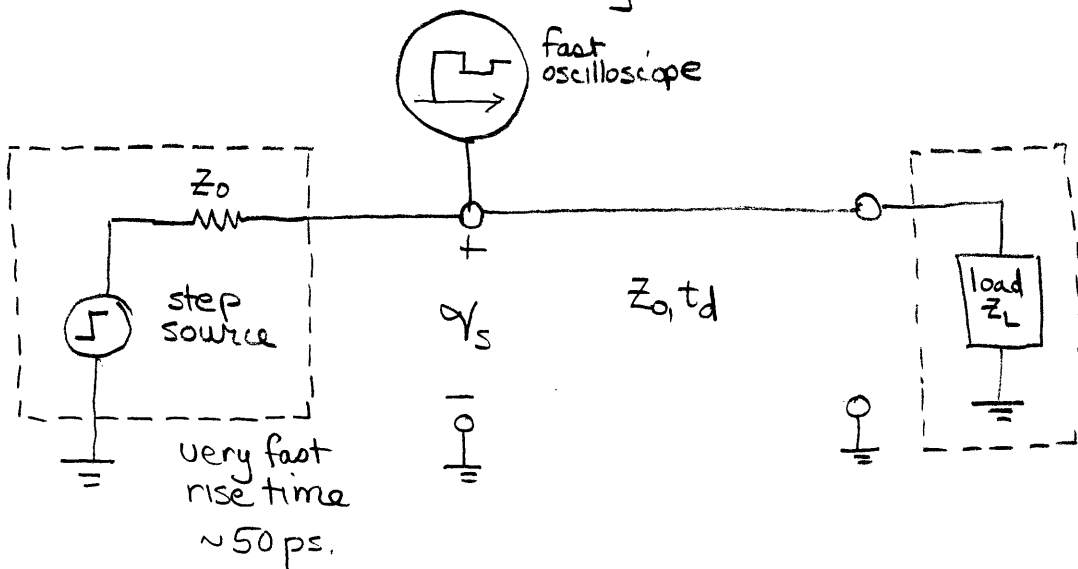 fast
oscilloscope
Z₀
step
source
+
𝓋s
−
Z₀, td
load
ZL
very fast
rise time
~50 ps.